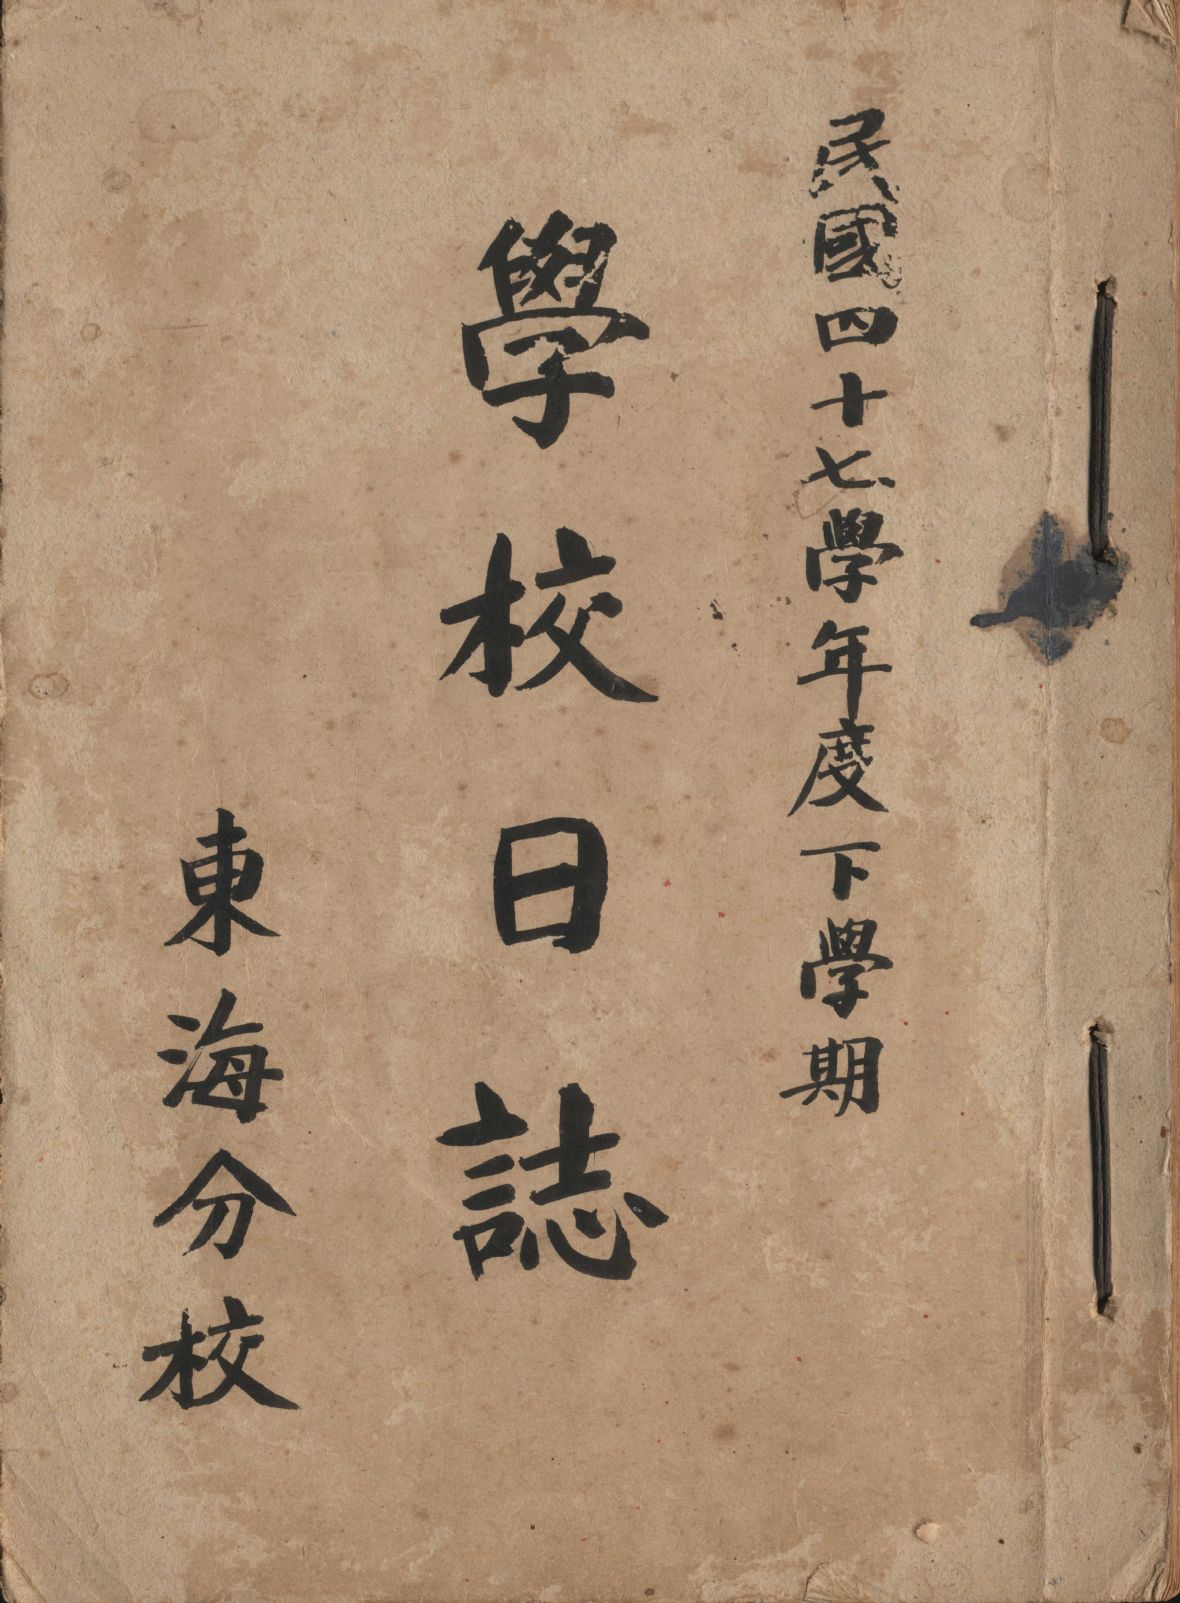 民國四十七學年度下學期
學校日誌
東海分校